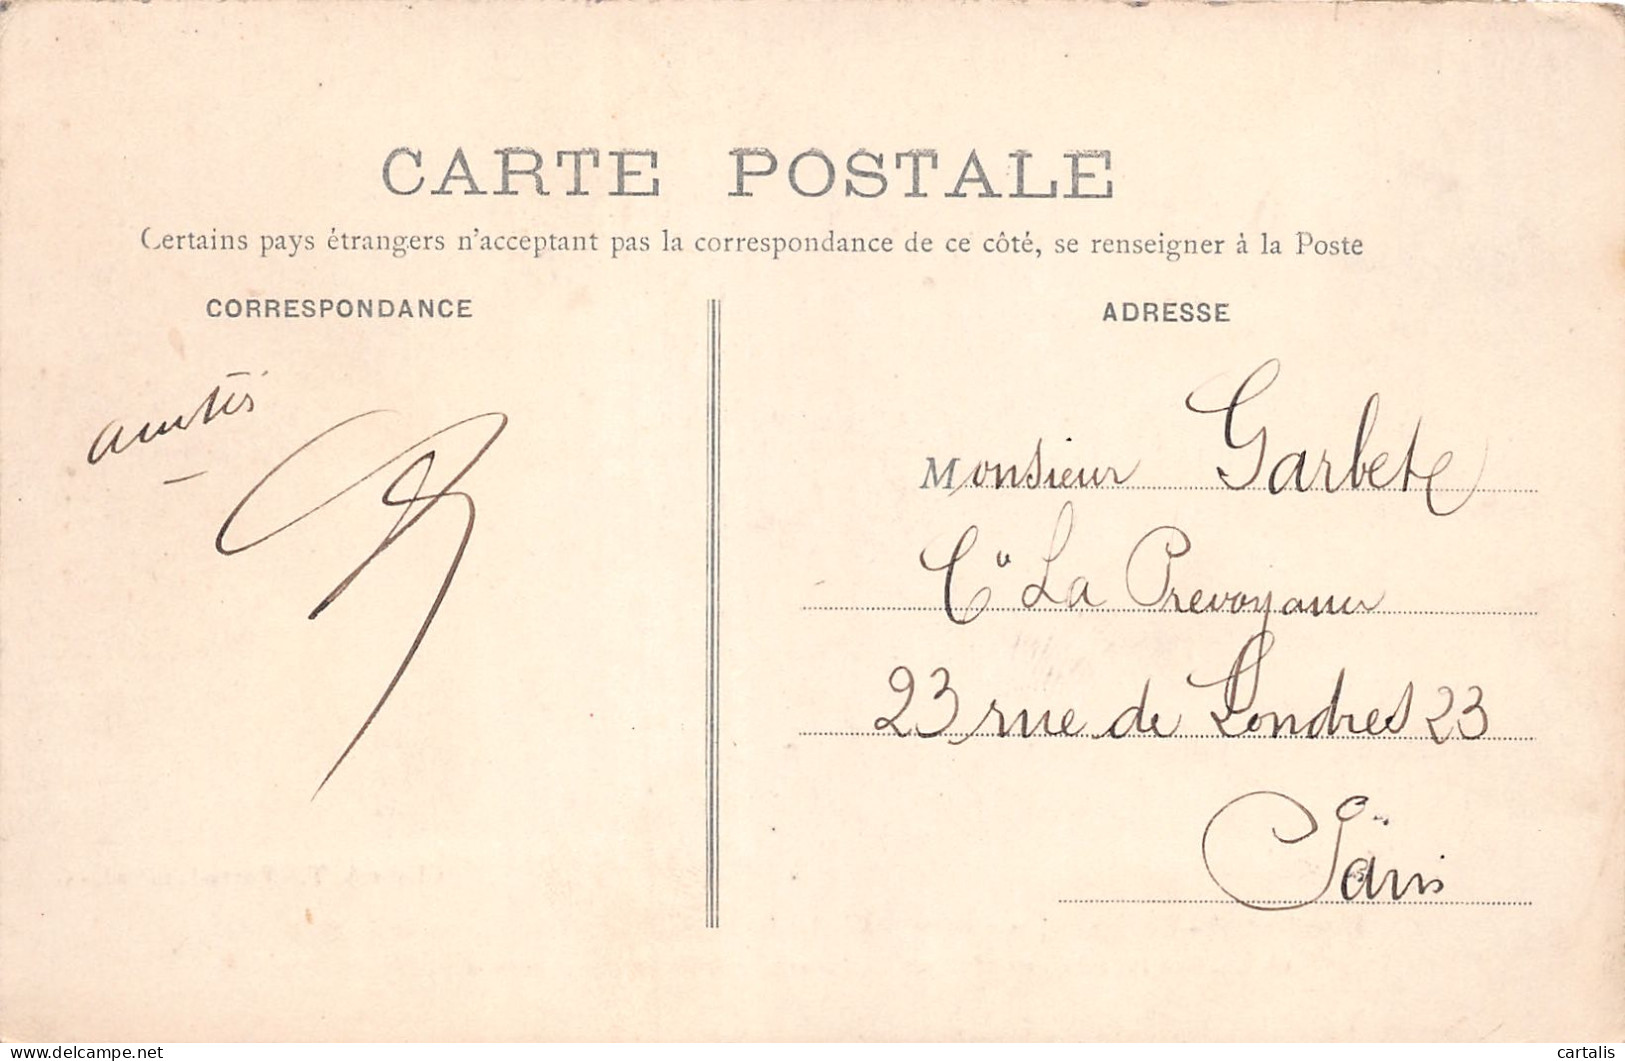 CARTE POSTALE
Certains pays étrangers n'acceptant pas la correspondance de ce côté, se renseigner à la Poste
CORRESPONDANCE
ADRESSE
amitiés
Monsieur Garbete
Cie La Prevoyance
23 rue de Londres 23
Paris
delcampe.net
cartalis